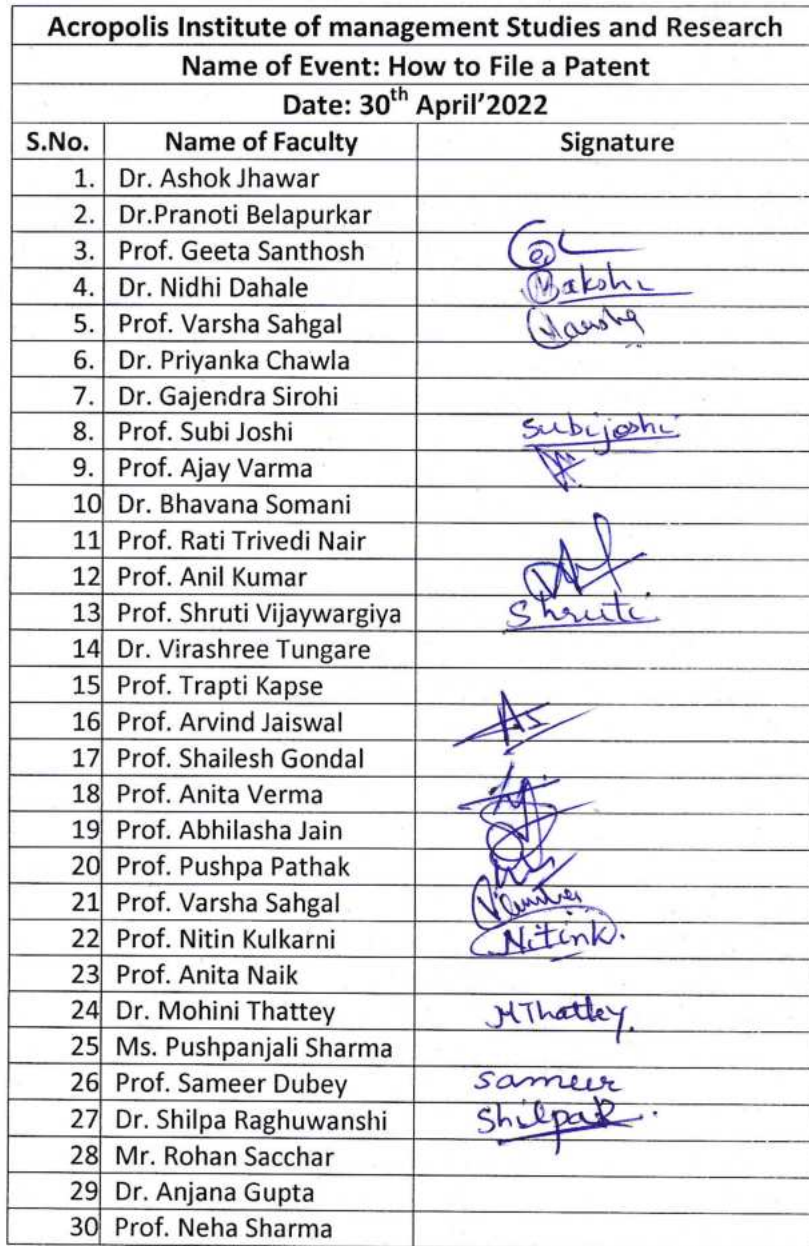 Acropolis Institute of management Studies and Research
Name of Event: How to File a Patent
Date: 30th April'2022
S.No. Name of Faculty Signature
1. Dr. Ashok Jhawar
2. Dr.Pranoti Belapurkar
3. Prof. Geeta Santhosh
4. Dr. Nidhi Dahale
5. Prof. Varsha Sahgal Varsha
6. Dr. Priyanka Chawla
7. Dr. Gajendra Sirohi
8. Prof. Subi Joshi Subijoshi
9. Prof. Ajay Varma
10 Dr. Bhavana Somani
11 Prof. Rati Trivedi Nair
12 Prof. Anil Kumar
13 Prof. Shruti Vijaywargiya Shruti
14 Dr. Virashree Tungare
15 Prof. Trapti Kapse
16 Prof. Arvind Jaiswal
17 Prof. Shailesh Gondal
18 Prof. Anita Verma
19 Prof. Abhilasha Jain
20 Prof. Pushpa Pathak
21 Prof. Varsha Sahgal
22 Prof. Nitin Kulkarni NitinK.
23 Prof. Anita Naik
24 Dr. Mohini Thattey MThattey.
25 Ms. Pushpanjali Sharma
26 Prof. Sameer Dubey Sameer
27 Dr. Shilpa Raghuwanshi ShilpaR.
28 Mr. Rohan Sacchar
29 Dr. Anjana Gupta
30 Prof. Neha Sharma